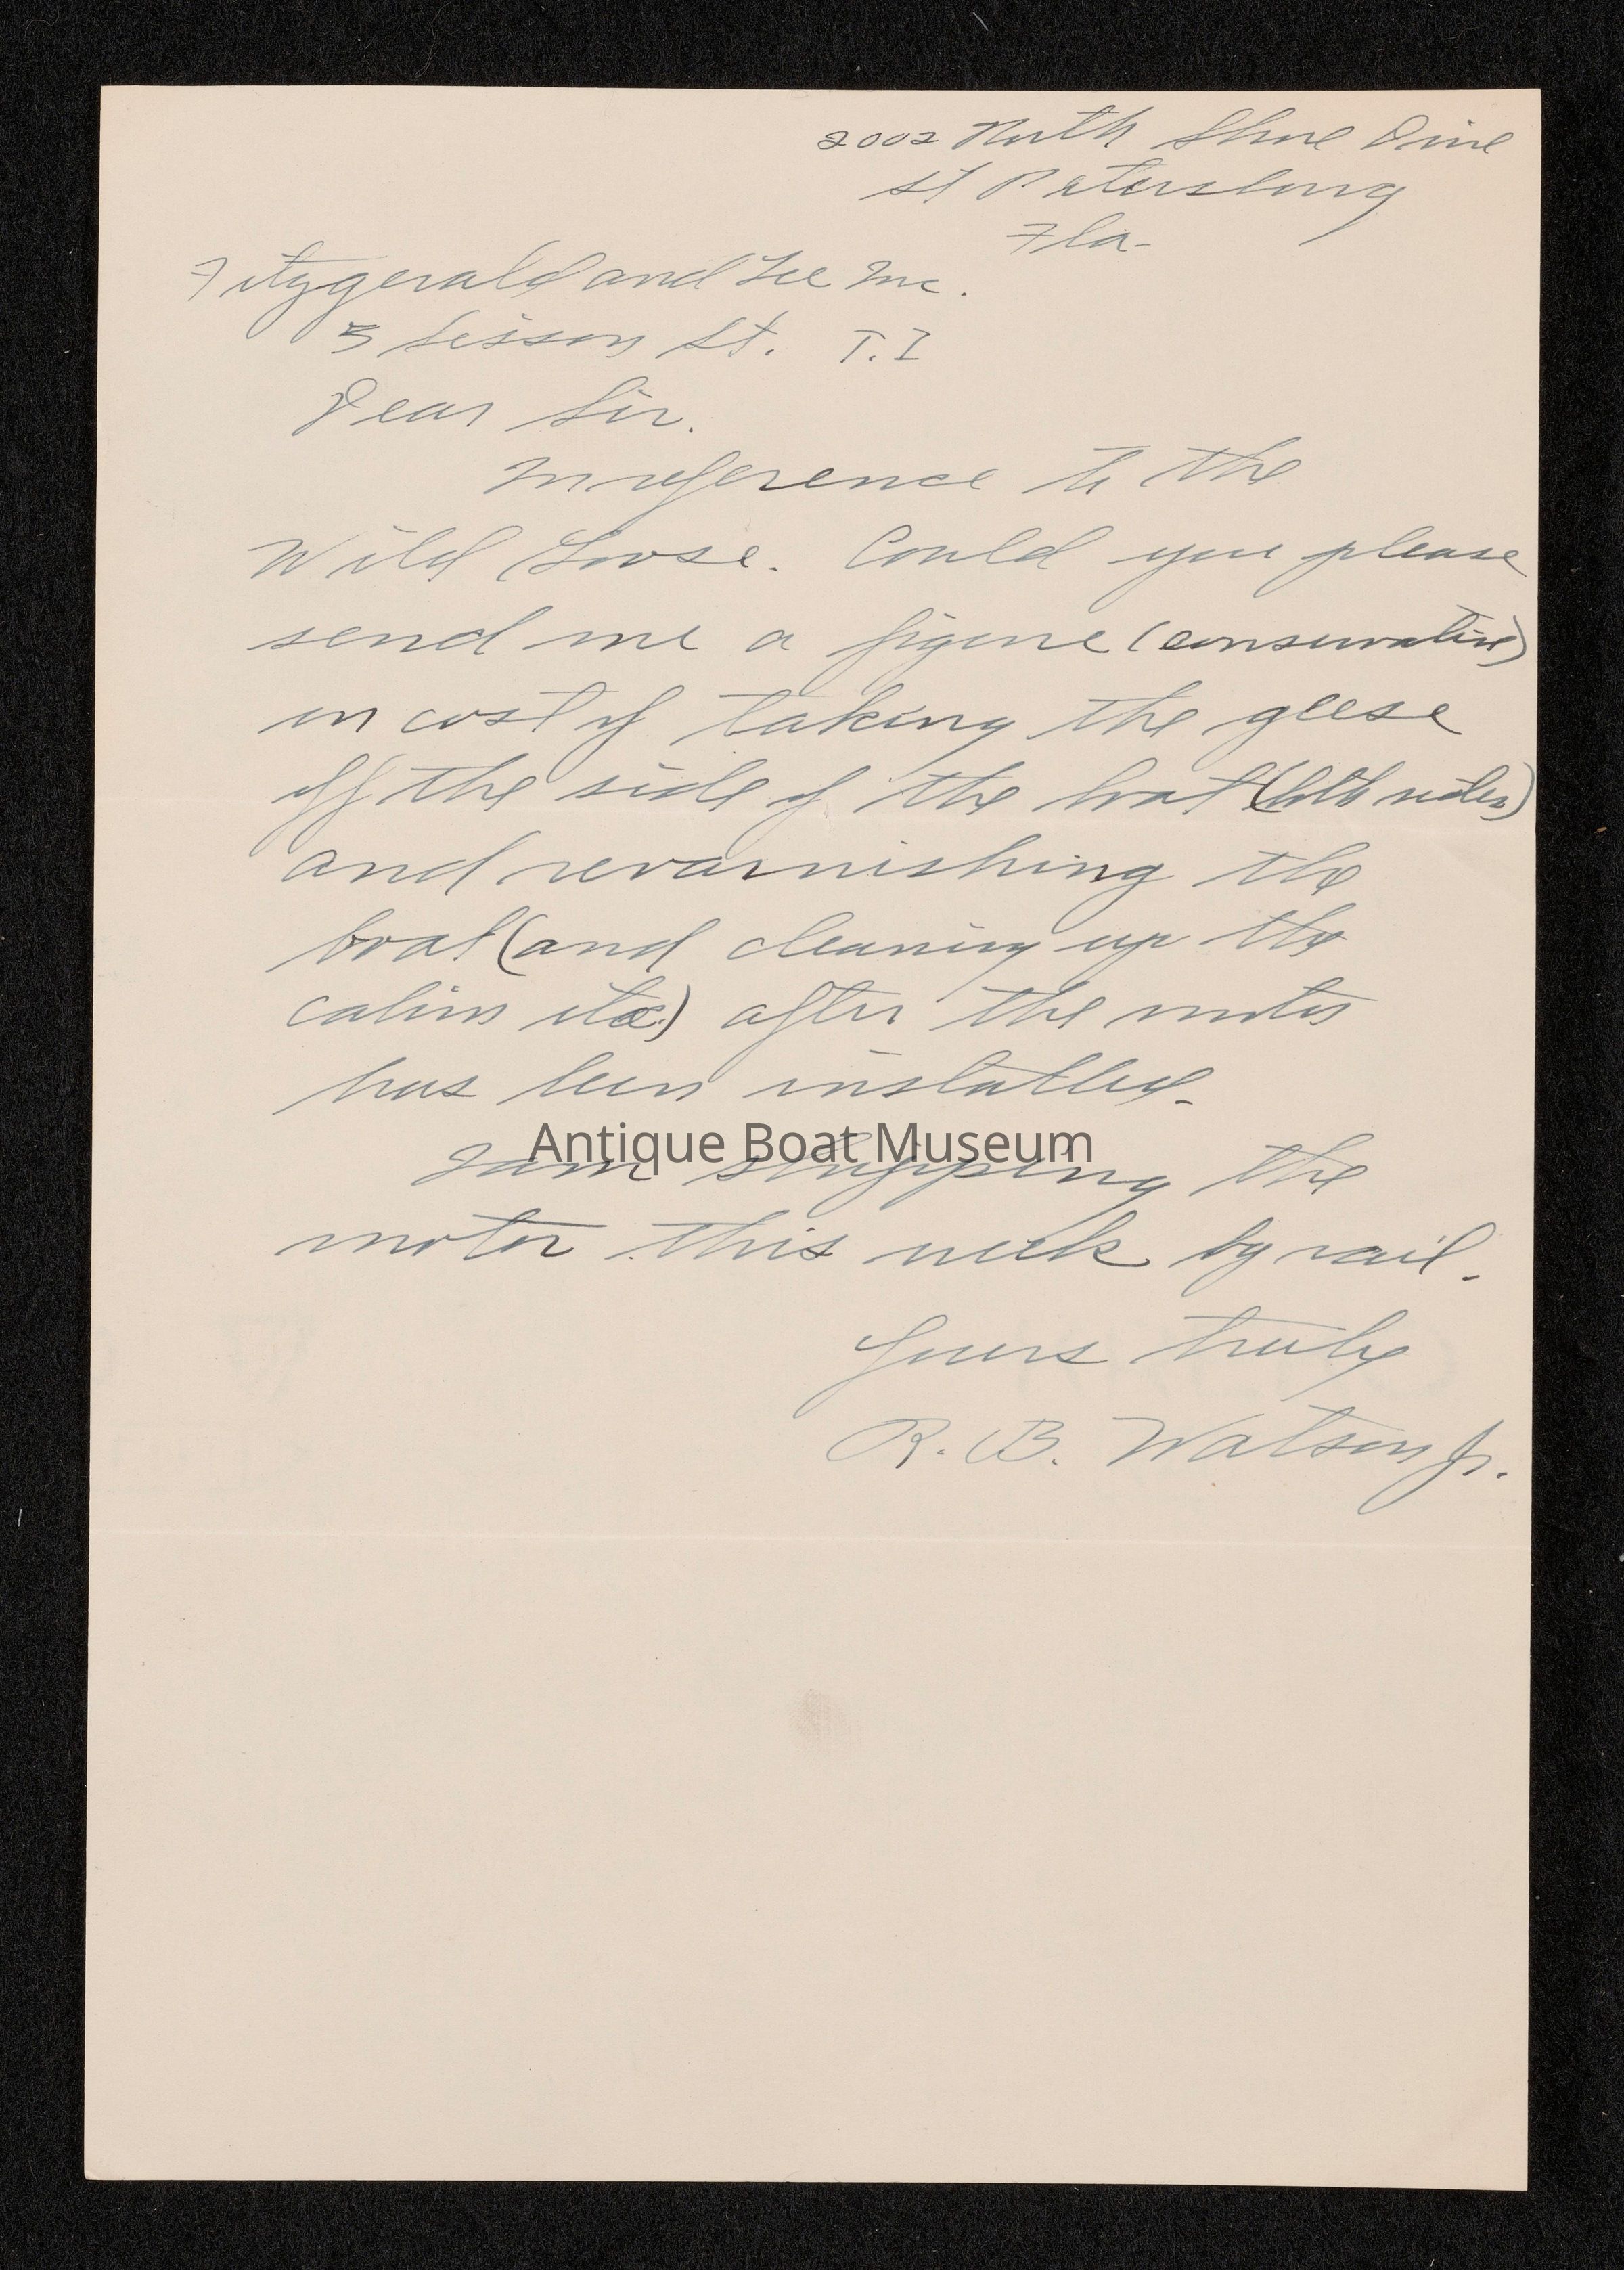 2002 North Shore Drive
St Petersburg
Fla-
Fitzgerald and Lee Inc.
5 Sisson St. T.I
Dear Sir.
In reference to the
Wild Goose. Could you please
send me a figure (conservative)
on cost of taking the geese
off the side of the boat (both sides)
and revarnishing the
boat (and cleaning up the
cabin etc.) after the motor
has been installed.
Antique Boat Museum
I am shipping the
motor this week by rail.
Yours truly
R. B. Watson Jr.